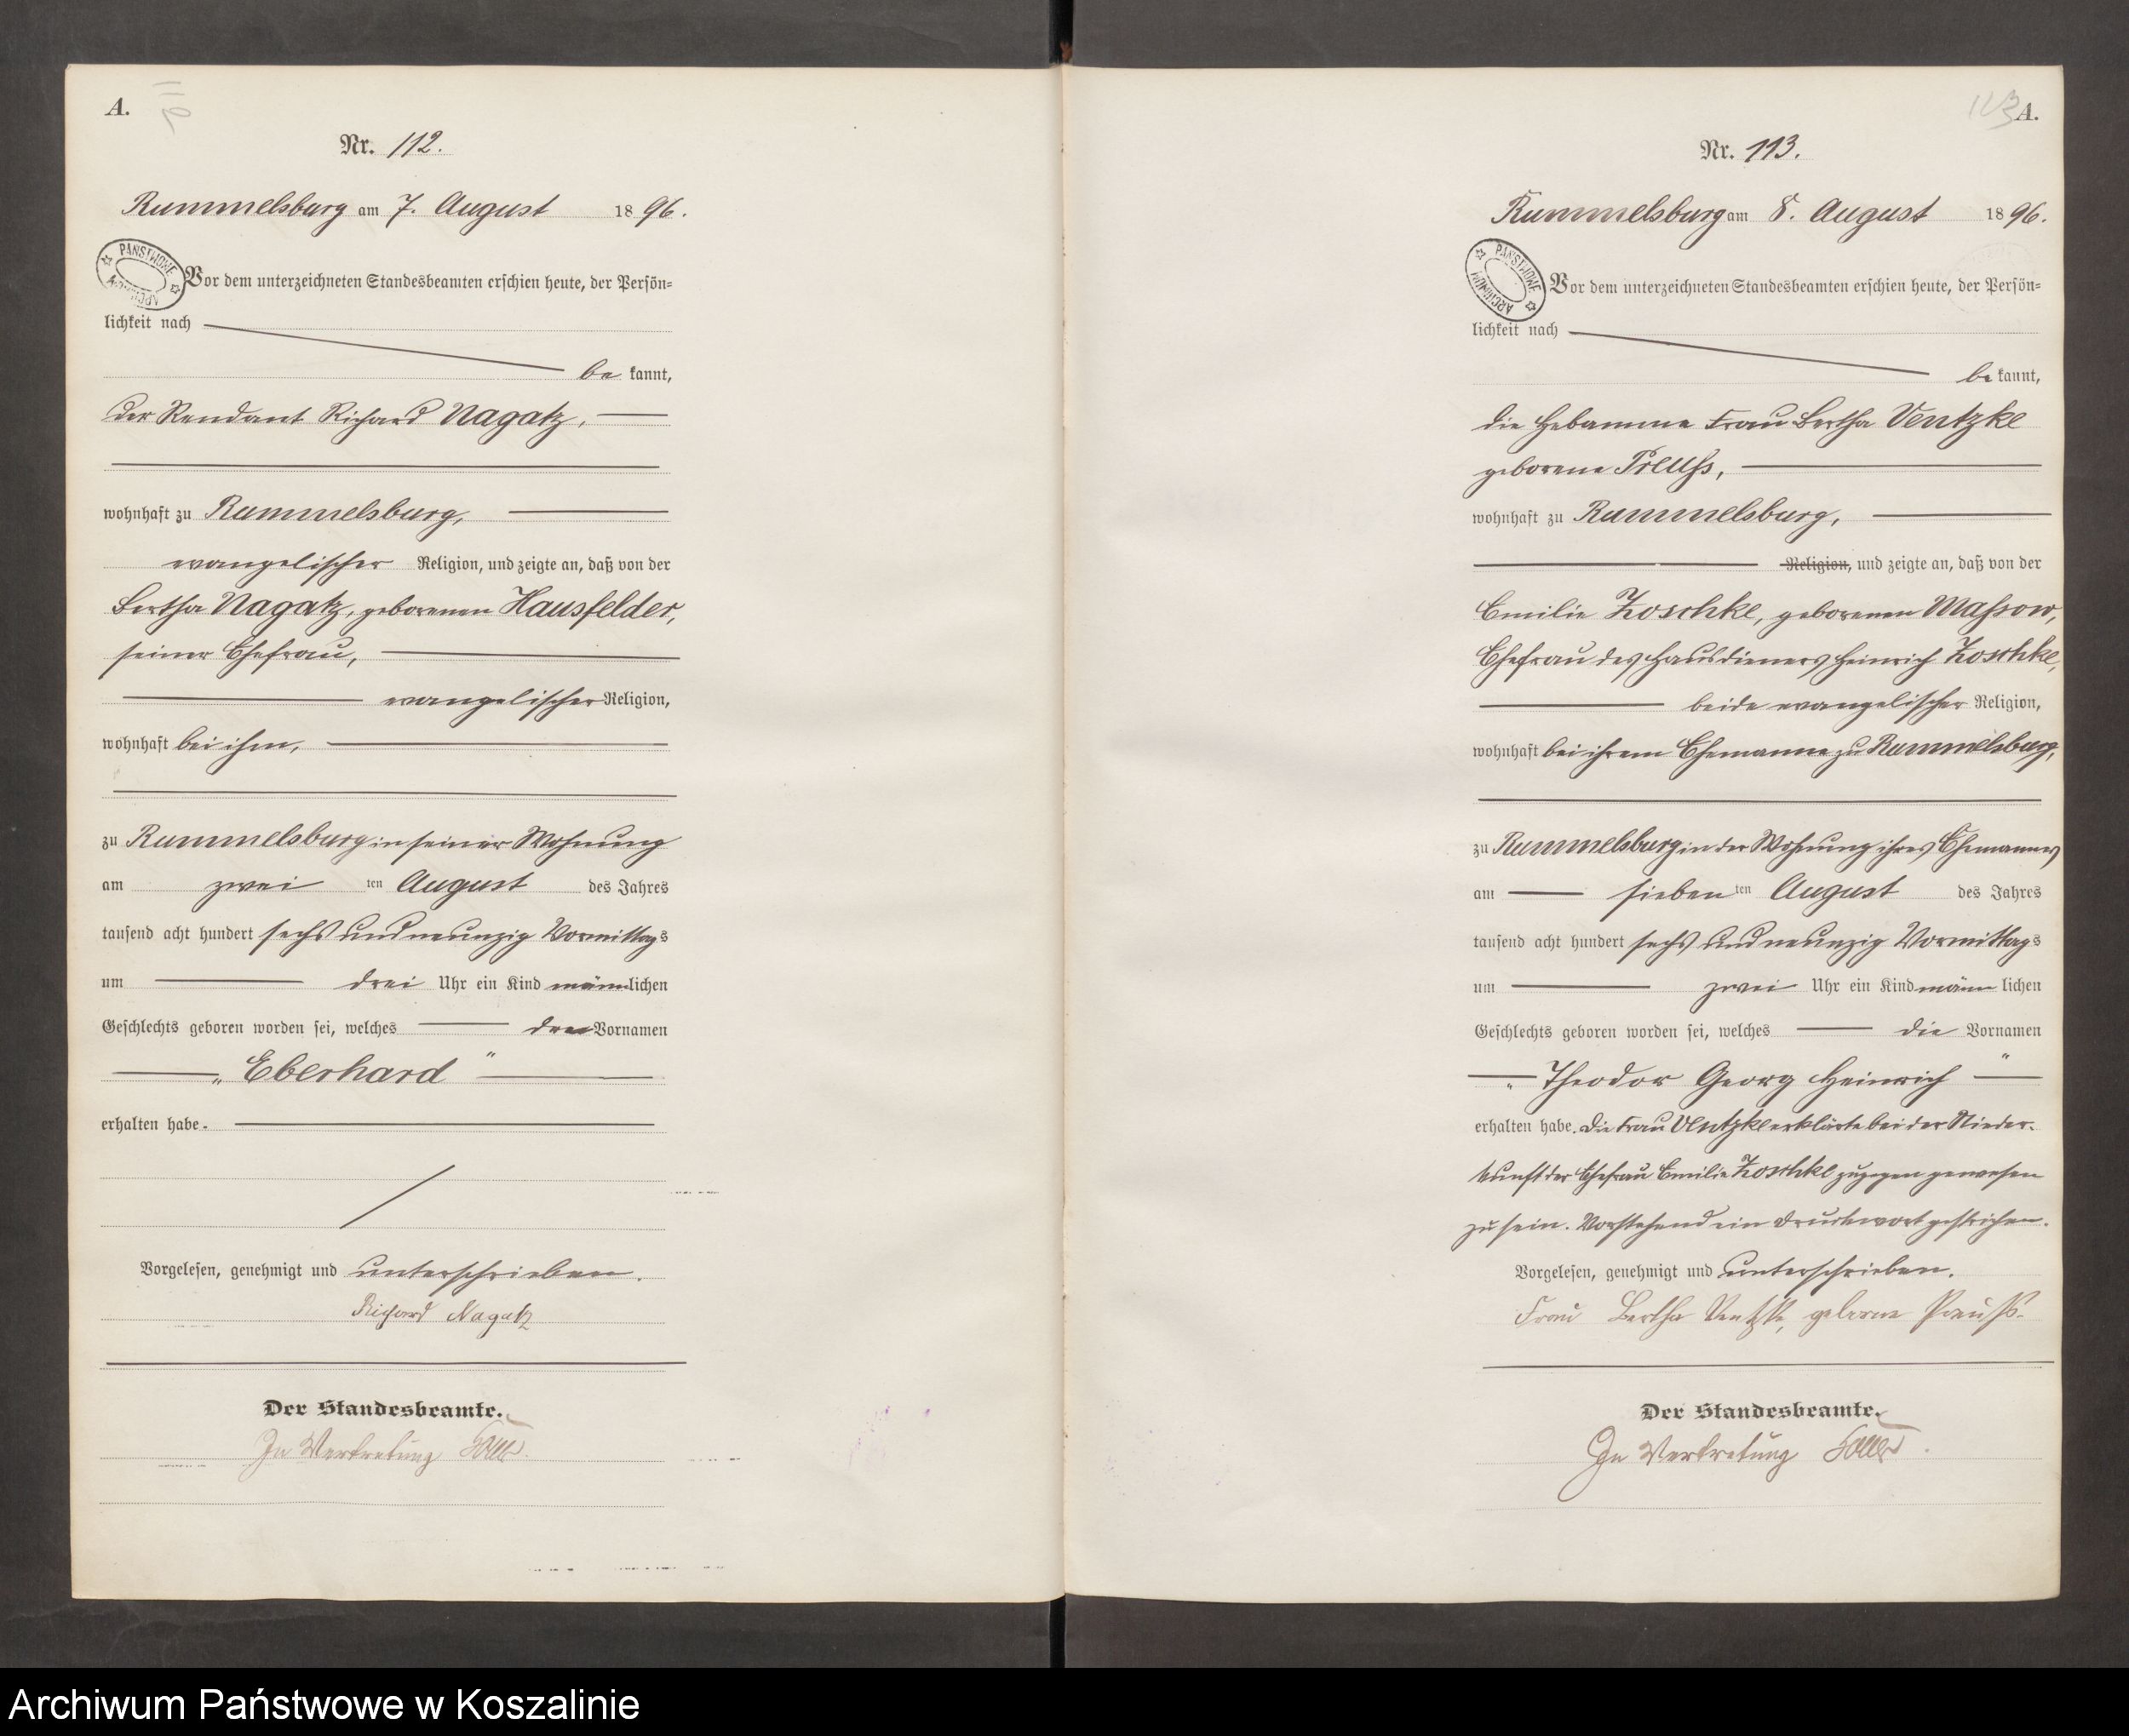 A.
Nr. 112.
Rummelsburg am 7. August 1896.
PAŃSTWOWE ARCHIWUM
Vor dem unterzeichneten Standesbeamten erschien heute, der Persön-
lichkeit nach
be kannt,
der Rendant Richard Nagatz,
wohnhaft zu Rummelsburg,
evangelischer Religion, und zeigte an, daß von der
Bertha Nagatz, geborenen Hausfelder,
seiner Ehefrau,
evangelischer Religion,
wohnhaft bei ihm,
zu Rummelsburg in seiner Wohnung
am zwei ten August des Jahres
tausend acht hundert sechs und neunzig Vormittags
um drei Uhr ein Kind männlichen
Geschlechts geboren worden sei, welches den Vornamen
„Eberhard“
erhalten habe.
Vorgelesen, genehmigt und unterschrieben.
Richard Nagatz
Der Standesbeamte.
In Vertretung
113
A.
Nr. 113.
Rummelsburg am 8. August 1896.
PAŃSTWOWE ARCHIWUM
Vor dem unterzeichneten Standesbeamten erschien heute, der Persön-
lichkeit nach
be kannt,
die Hebamme Frau Bertha Ventzke
geborene Preuß,
wohnhaft zu Rummelsburg,
Religion, und zeigte an, daß von der
Emilie Zoschke, geborenen Massow,
Ehefrau des Hausdieners Heinrich Zoschke,
beide evangelischer Religion,
wohnhaft bei ihrem Ehemanne zu Rummelsburg,
zu Rummelsburg in der Wohnung ihres Ehemannes
am sieben ten August des Jahres
tausend acht hundert sechs und neunzig Vormittags
um zwei Uhr ein Kind männ lichen
Geschlechts geboren worden sei, welches die Vornamen
„Theodor Georg Heinrich“
erhalten habe. Die Frau Ventzke erklärte bei der Nieder-
kunft der Ehefrau Emilie Zoschke zugegen gewesen
zu sein. Vorstehend ein Druckwort gestrichen.
Vorgelesen, genehmigt und unterschrieben.
Frau Bertha Ventzke, geborne Preuß.
Der Standesbeamte.
In Vertretung
Archiwum Państwowe w Koszalinie